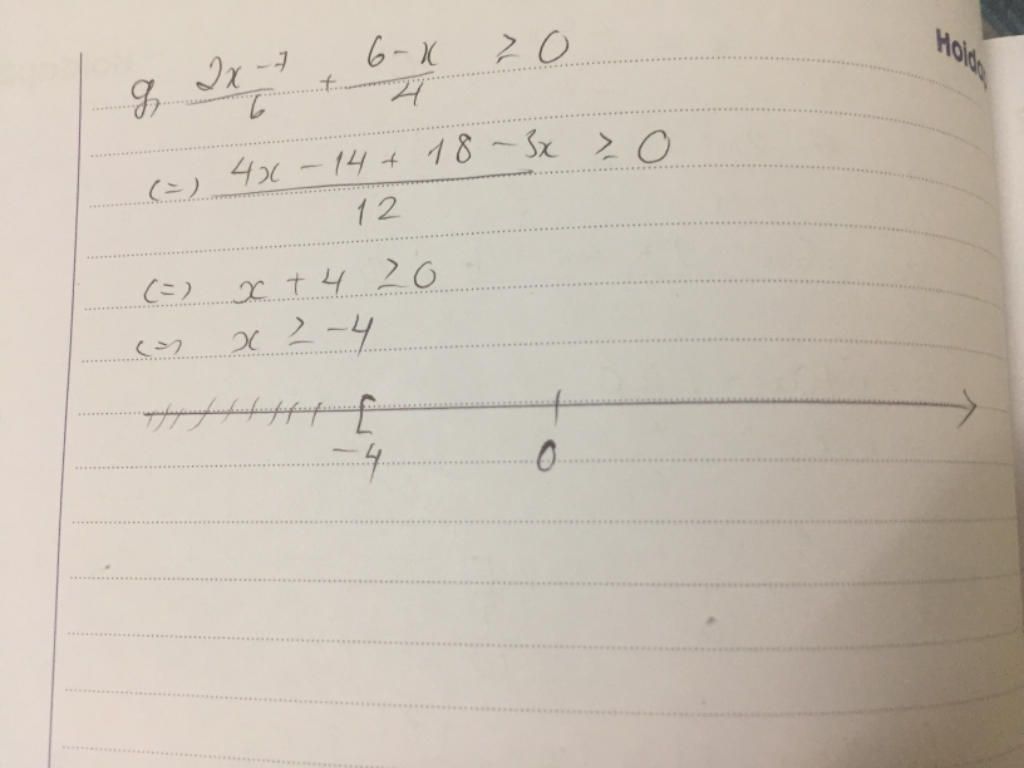 g, (2x-7)/6 + (6-x)/4 ≥ 0
(=) (4x - 14 + 18 - 3x)/12 ≥ 0
(=) x + 4 ≥ 0
(=) x ≥ -4
[
-4 0